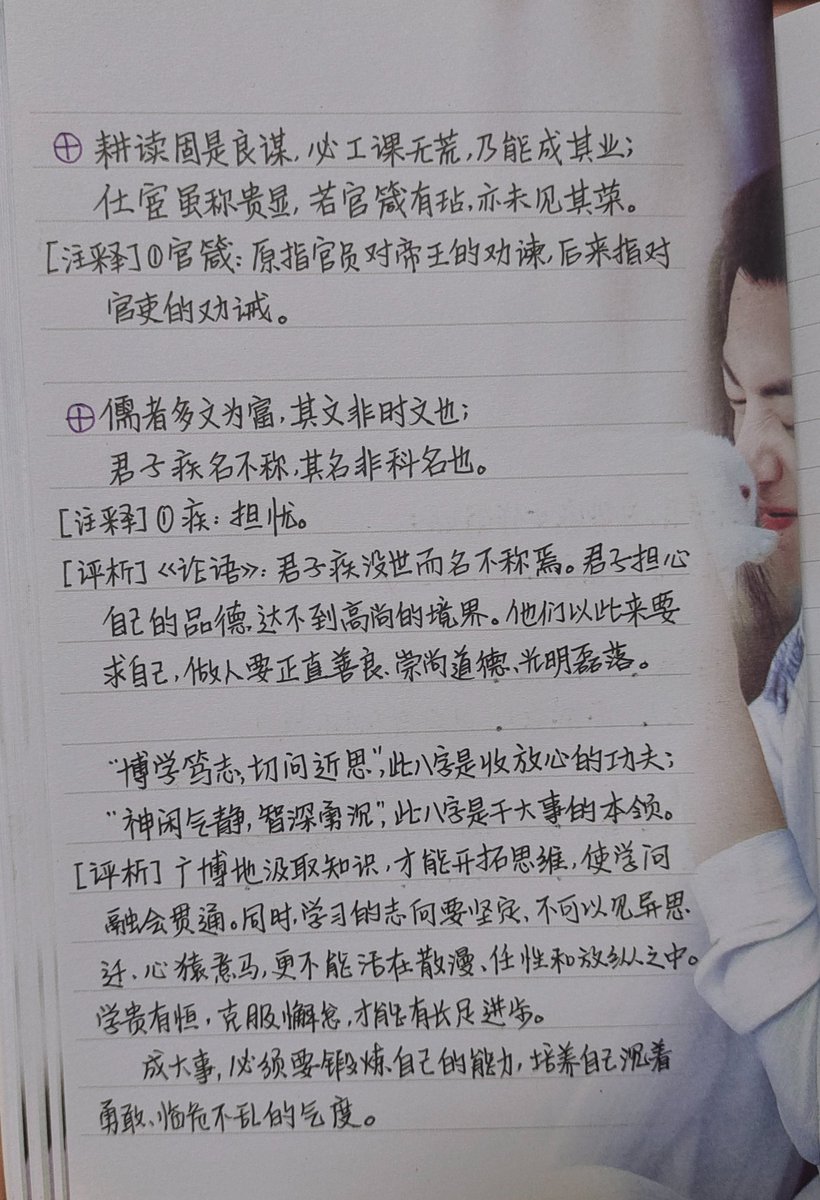 ⊕ 耕读固是良谋,必工课无荒,乃能成其业;
仕宦虽称贵显,若官箴有玷,亦未见其荣。
[注释]①官箴:原指官员对帝王的劝谏,后来指对
官吏的劝诫。
⊕儒者多文为富,其文非时文也;
君子疾名不称,其名非科名也。
[注释]①疾:担忧。
[评析]《论语》:君子疾没世而名不称焉。君子担心
自己的品德达不到高尚的境界。他们以此来要
求自己,做人要正直善良、崇尚道德、光明磊落。
“博学笃志,切问近思”,此八字是收放心的功夫;
“神闲气静,智深勇沉”,此八字是干大事的本领。
[评析]广博地汲取知识,才能开拓思维,使学问
融会贯通。同时,学习的志向要坚定、不可以见异思
迁、心猿意马,更不能活在散漫、任性和放纵之中。
学贵有恒,克服懈怠,才能有长足进步。
成大事,必须要锻炼自己的能力,培养自己沉着
勇敢、临危不乱的气度。